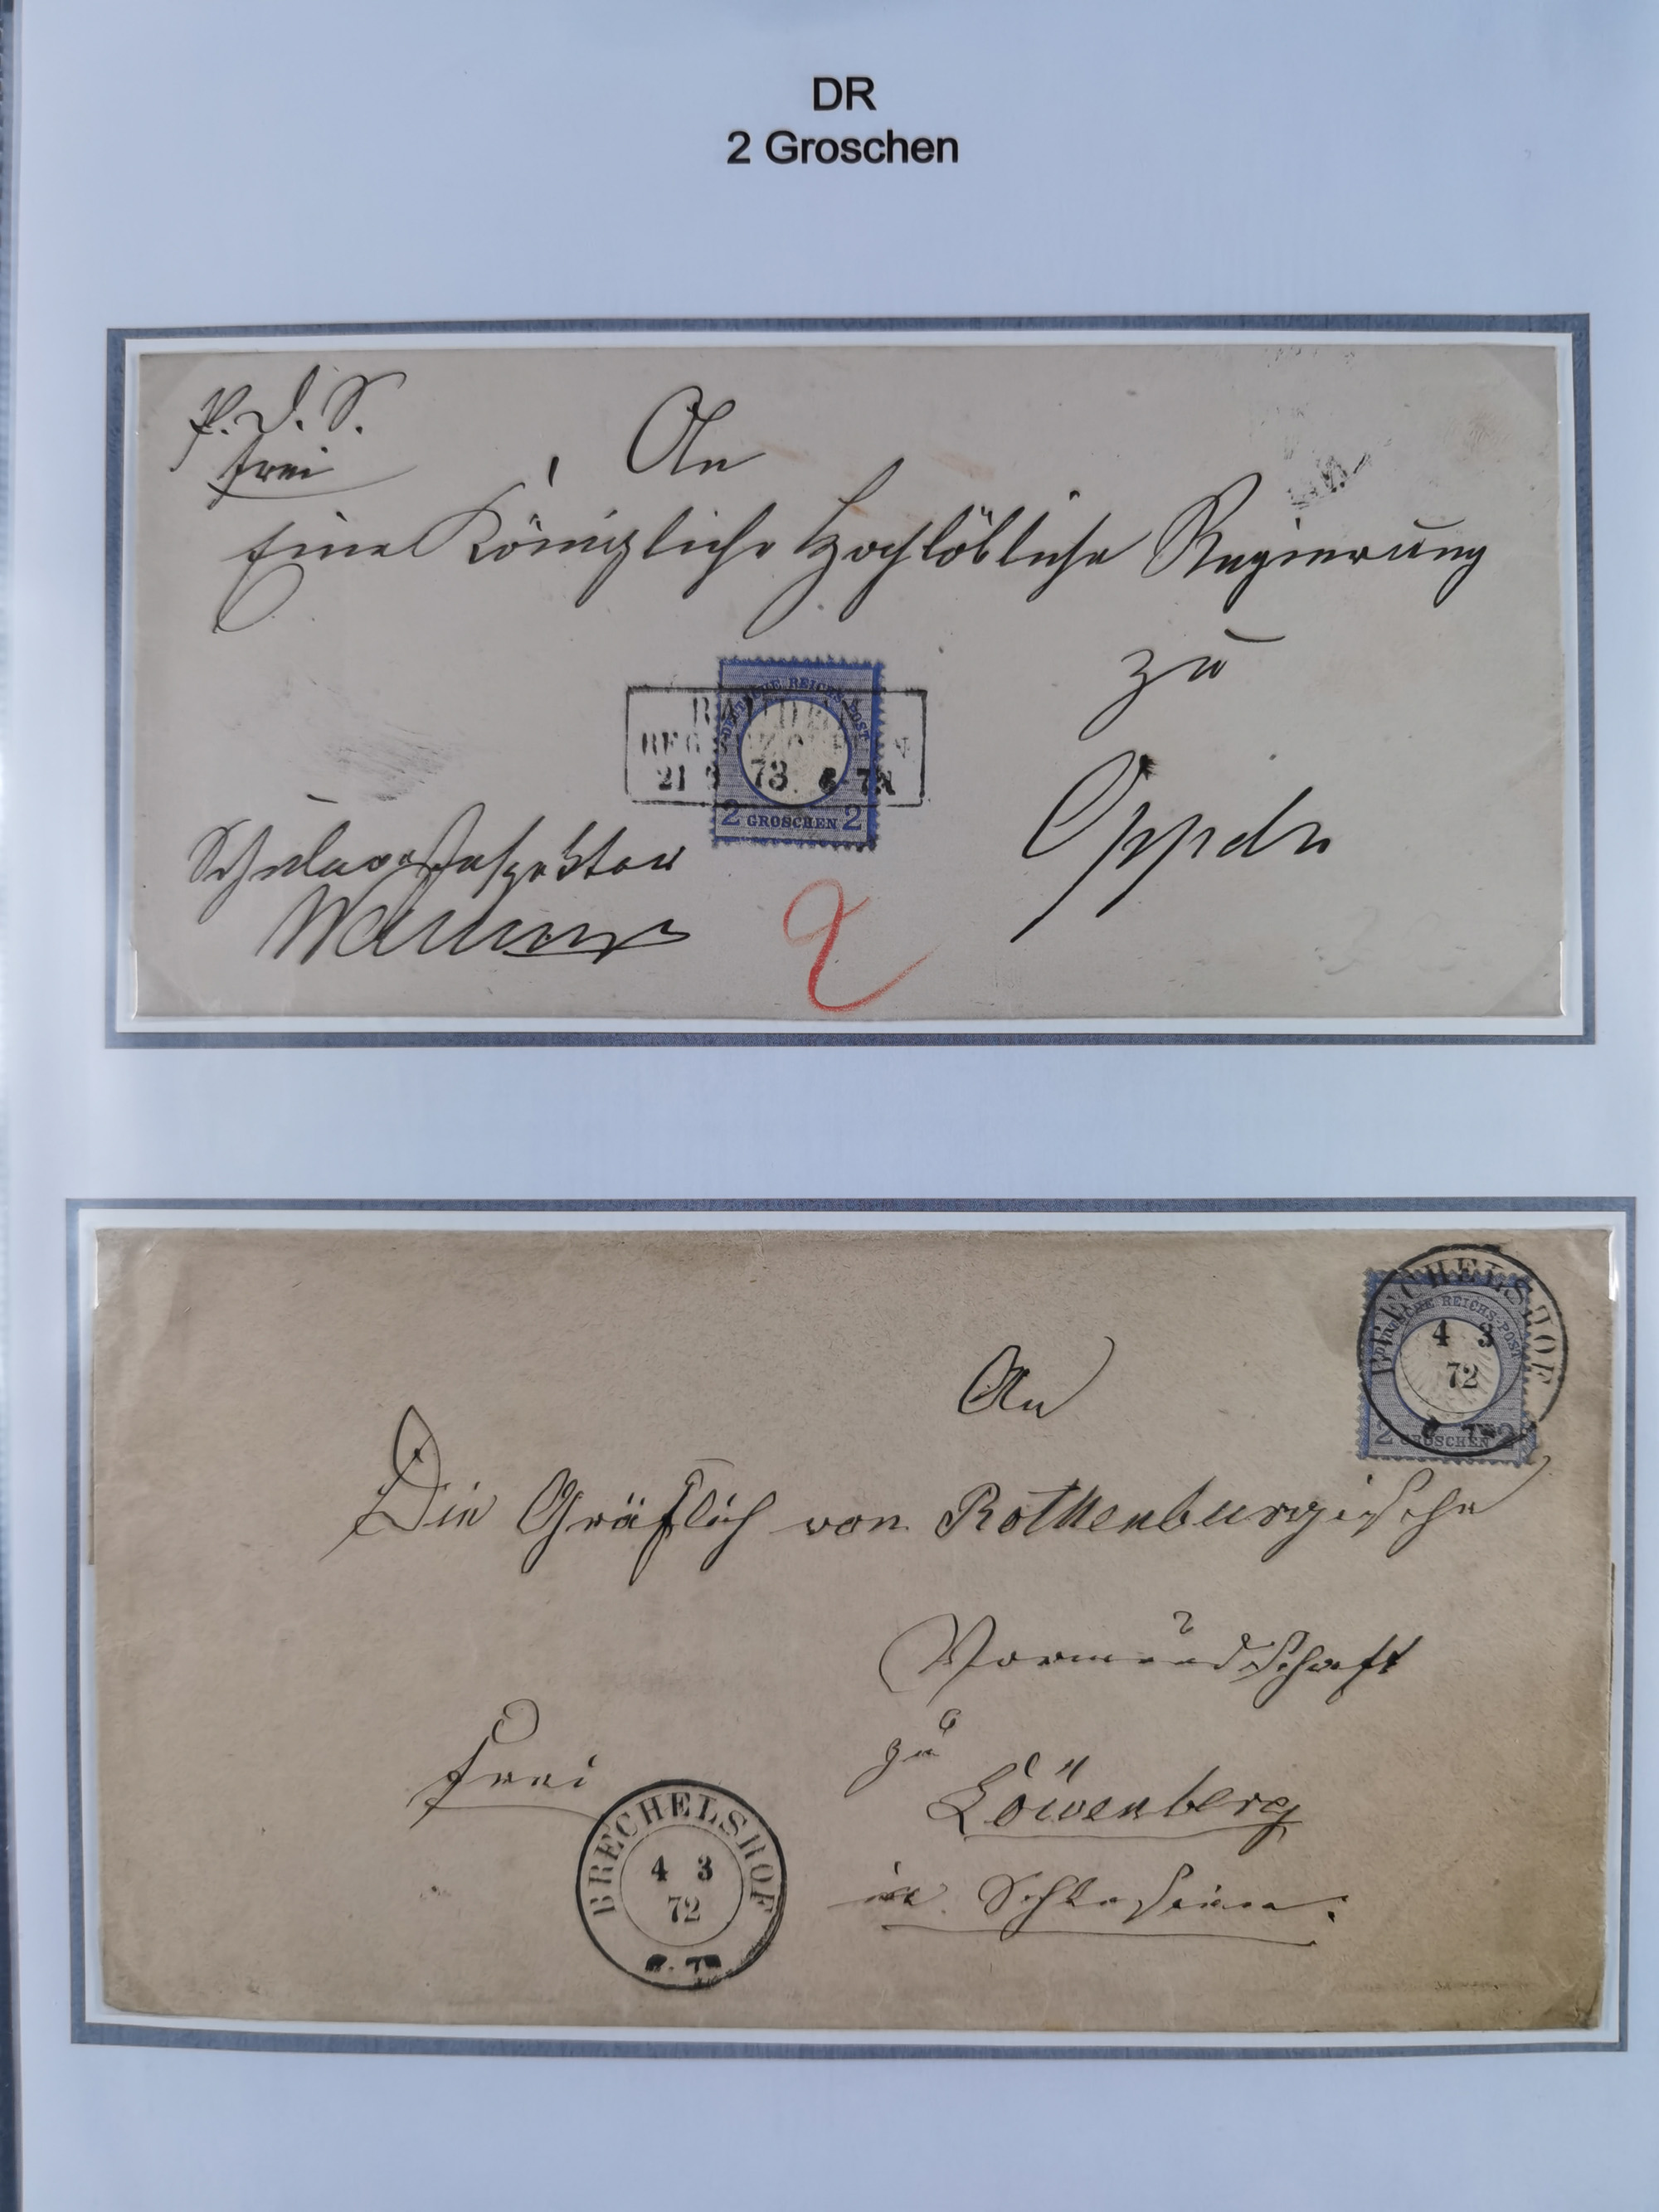 DR
2 Groschen
P. J. S.
frei
An
Eine Königliche Hochlöbliche Regierung
zu
Oppeln
DEUTSCHE REICHS-POST
21 73
2 GROSCHEN 2
Schulen-Inspektor
2
BRECHELSHOF
DEUTSCHE REICHS-POST
4 3
72
2 GROSCHEN 2
An
Die Gräflich von Rothenburgische
Vormundschaft
zu
Löwenberg
in Schlesien.
frei
BRECHELSHOF
4 3
72